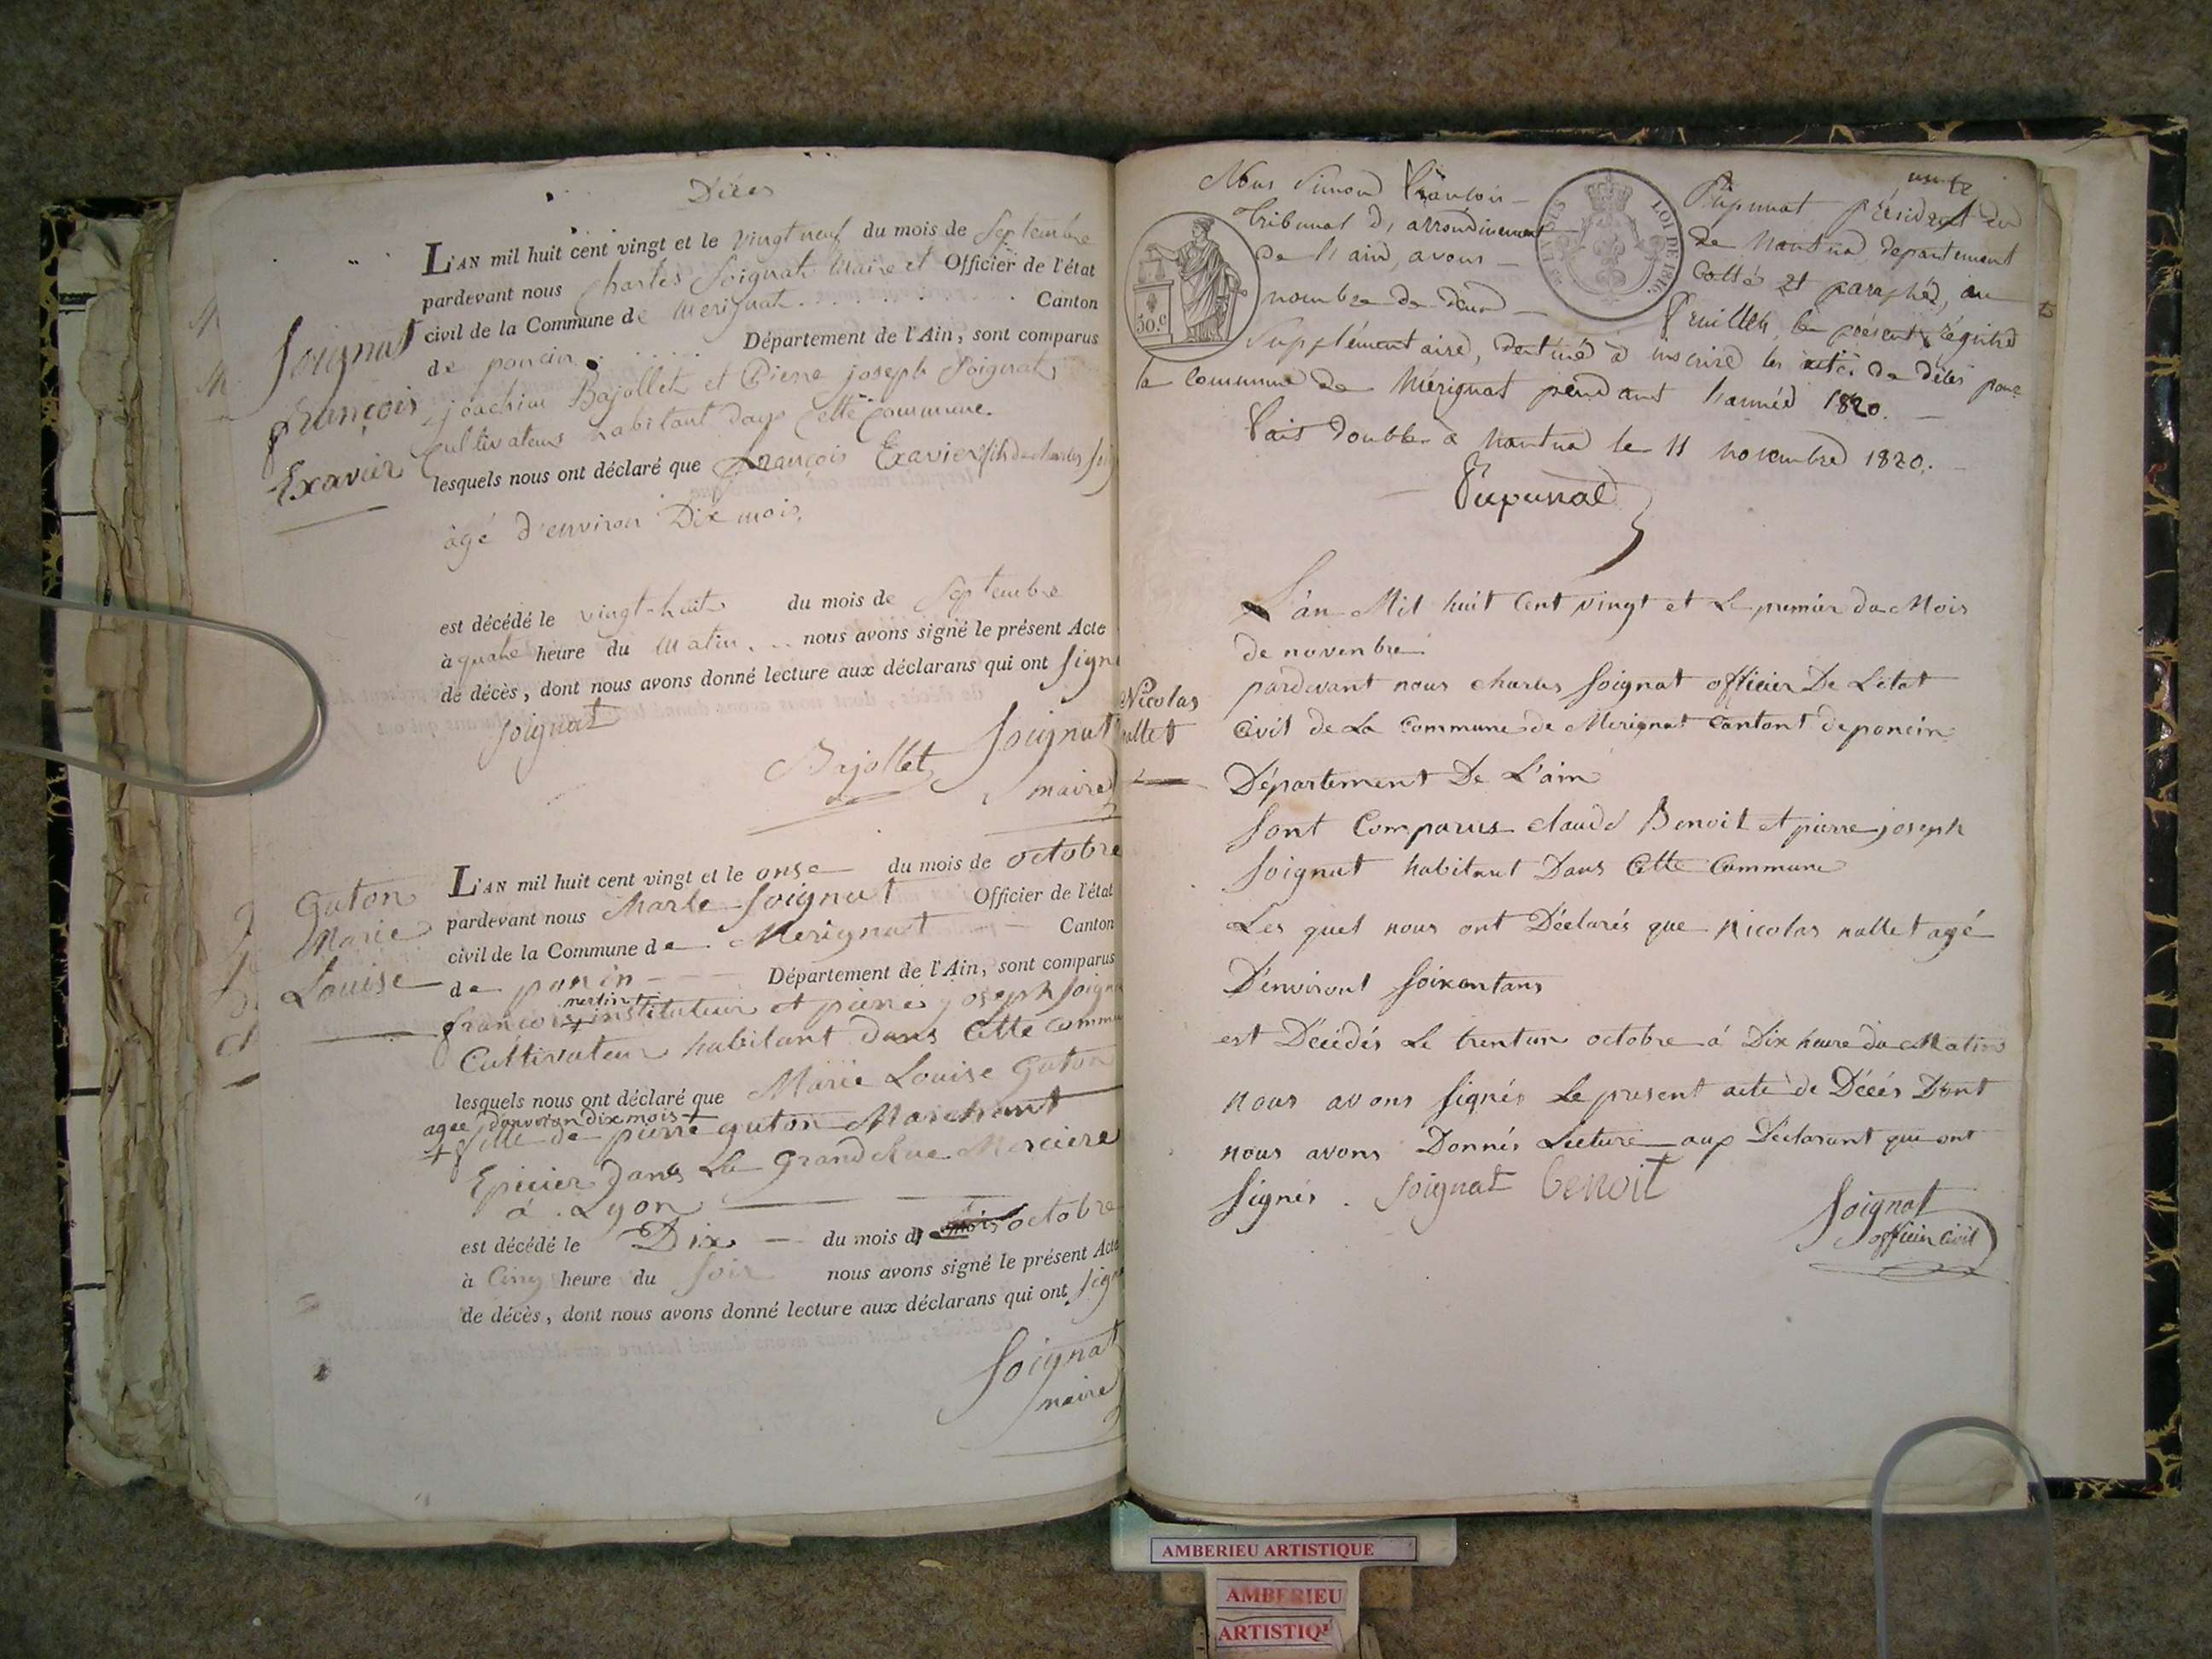 Décès
L'AN mil huit cent vingt et le vingt neuf du mois de Septembre
pardevant nous Charles Soignat Maire et Officier de l'état
civil de la Commune de Merignat Canton
de poncin Département de l'Ain, sont comparus
joachim Bajollet et Pierre joseph Soignat
Cultivateurs habitant dans Cette Commune.
lesquels nous ont déclaré que François Exavier fils de charles Soig
âgé d'environ Dix mois,
est décédé le vingt-huit du mois de Septembre
à quatre heure du Matin. nous avons signé le présent Acte
de décès, dont nous avons donné lecture aux déclarans qui ont signé
Soignat
Bajollet Soignat
maire
Soignat
françois
Exavier
L'AN mil huit cent vingt et le onse du mois de octobre
pardevant nous Charle Soignat Officier de l'état
civil de la Commune de Merignat Canton
de poncin Département de l'Ain, sont comparus
merlin
françois + instituteur et pierre joseph Soigna
Cultivateur habitant dans Cette Commu
lesquels nous ont déclaré que Marie Louise Guton
agee d'environ dix mois +
+ fille de pierre guton Marchant
Epicier Dans La Grande Rue Merciere
à Lyon
est décédé le Dix du mois d octobre
à Cinq heure du Soir nous avons signé le présent Acte
de décès, dont nous avons donné lecture aux déclarans qui ont Signé
Soignat
maire
Guton
Marie
Louise
Nous Simond François Pupunat président du
Tribunal d'arrondinement de Nantua, département
de l'ain, avons Cotté et paraphé, au
nombre de deux feuillets, le présent régistre
Supplémentaire, destiné à inscrire les actes de décès pour
la Commune de Mérignat pendant l'année 1820.
Fait double à Nantua le 11 novembre 1820.
Pupunat
50.c
LOI DE 1816.
L'an Mil huit Cent vingt et Le premier du Mois
de novenbre
pardevant nous charles Soignat officier De L'état
Civil de La Commune de Merignat Cantont de poncin
Département De L'ain
Sont Comparus claude Benoit et pierre joseph
Soignat habitant Dans Cette Commune
Les quel nous ont Déclarés que Nicolas nallet agé
D'environt Soixentans
est Décédés Le trentun octobre à Dix heure du Matin
nous avons Signés Le present acte de Décés Dont
nous avons Donnés Lecture aux Déclarant qui ont
Signés. Soignat benoit
Soignat
officier Civil
Nicolas
nallet
AMBERIEU ARTISTIQUE
AMBERIEU
ARTISTIQ